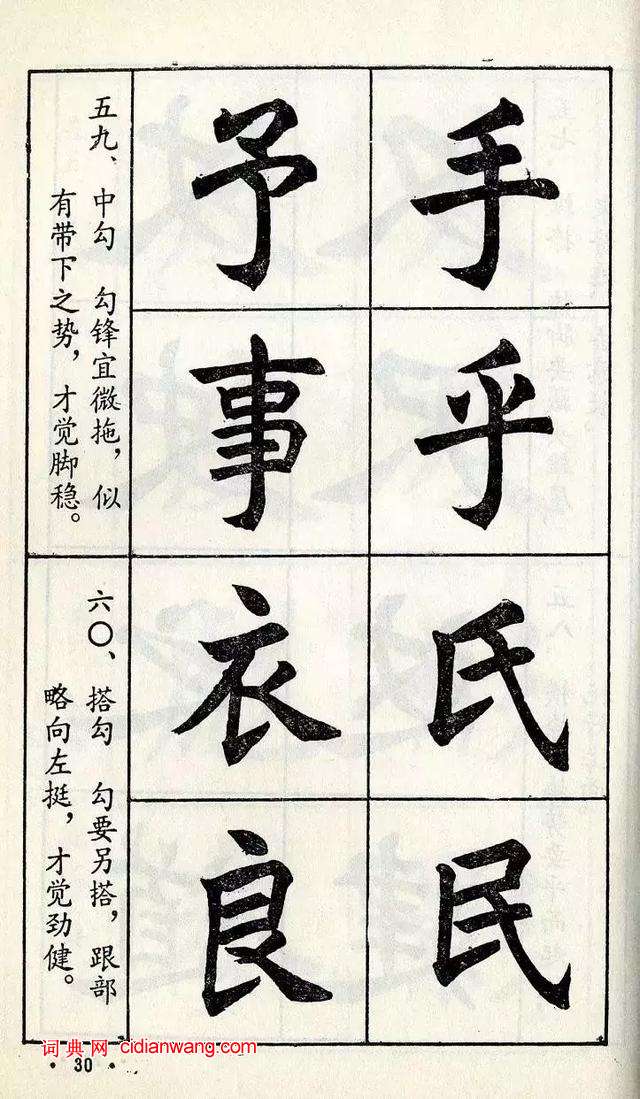 手
乎
予
事
五九、中勾 勾锋宜微拖，似
有带下之势，才觉脚稳。
氏
民
衣
良
六〇、搭勾 勾要另搭，跟部
略向左挺，才觉劲健。
词典网 cidianwang.com
· 30 ·